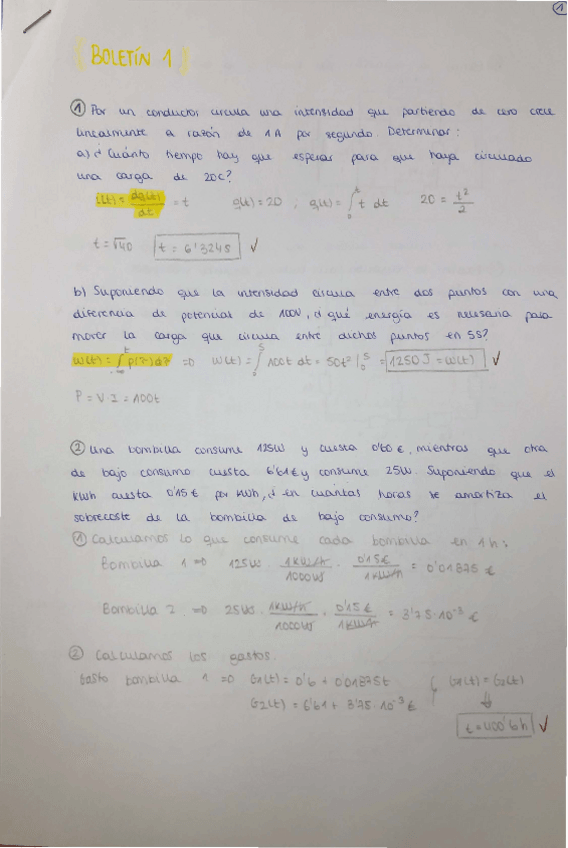 1
BOLETÍN 1
① Por un conductor circula una intensidad que partiendo de cero crece
linealmente a razón de 1A por segundo. Determinar:
a) ¿Cuánto tiempo hay que esperar para que haya circulado
una carga de 20C?
i(t) = dq(t)/dt = t q(t) = 20 ; q(t) = ∫₀ᵗ t dt 20 = t²/2
t = √40 t = 6'324s ✓
b) Suponiendo que la intensidad circula entre dos puntos con una
diferencia de potencial de 100V, ¿qué energía es necesaria para
mover la carga que circula entre dichos puntos en 5s?
w(t) = ∫ p(τ)dτ => w(t) = ∫₀⁵ 100t dt = 50t² |₀⁵ = 1250 J = w(t) ✓
P = V · I = 100t
② Una bombilla consume 125W y cuesta 0'60 €, mientras que otra
de bajo consumo cuesta 6'61€ y consume 25W. Suponiendo que el
kWh cuesta 0'15 € por kWh, ¿en cuántas horas se amortiza el
sobrecoste de la bombilla de bajo consumo?
① Calculamos lo que consume cada bombilla en 1h:
Bombilla 1 => 125W · 1kW/h/1000W · 0'15€/1kW/h = 0'01875 €
Bombilla 2 => 25W · 1kW/h/1000W · 0'15€/1kW/h = 3'75·10⁻³ €
② Calculamos los gastos.
Gasto bombilla 1 => G1(t) = 0'6 + 0'01875t G1(t) = G2(t)
G2(t) = 6'61 + 3'75·10⁻³ € ⇓
t = 400'6h ✓